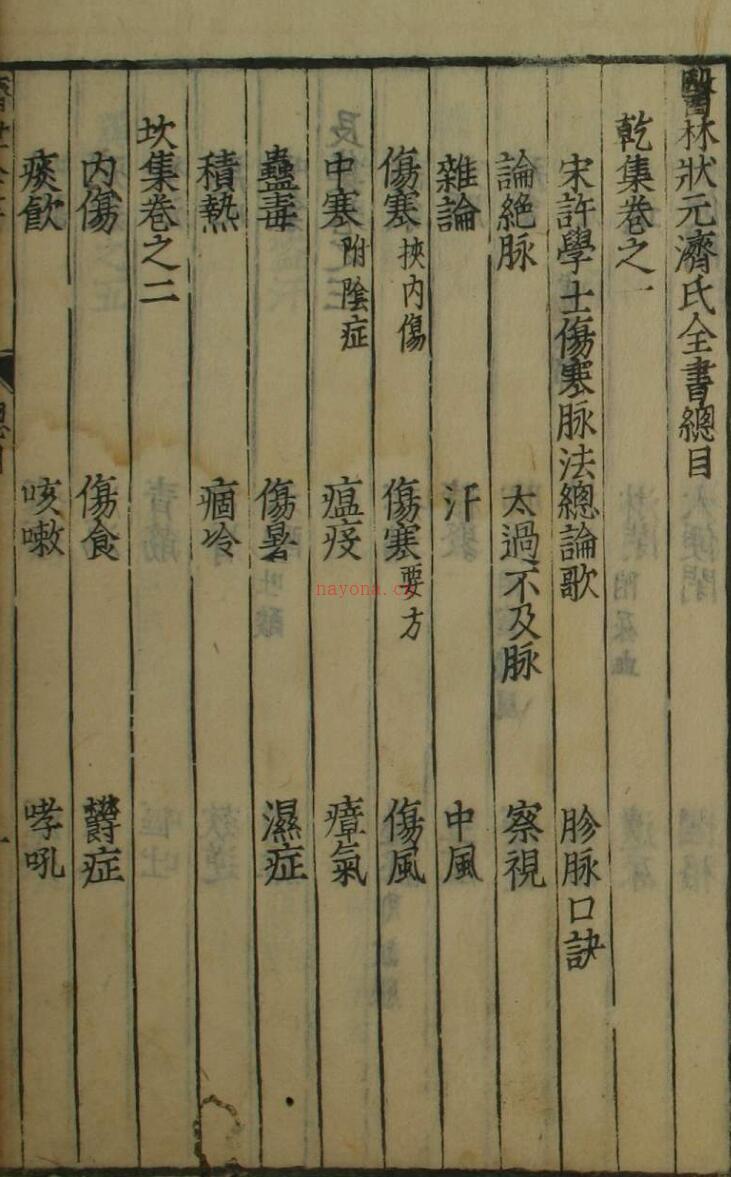 醫林狀元濟氏全書總目
乾集卷之一
宋許學士傷寒脉法總論歌 胗脉口訣
論絶脉 太過不及脉 察視
雜論 汗 中風
傷寒挾内傷 傷寒要方 傷風
中寒附陰症 瘟疫 瘴氣
蠱毒 傷暑 濕症
積熱 痼冷
坎集卷之二
内傷 傷食 欝症
痰飲 咳嗽 哮吼
nayona.cn